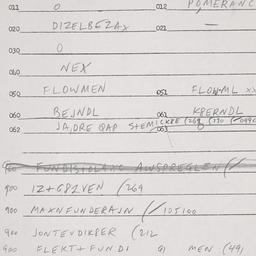 011 0 012 POMERANC
020 DIZELBEZAX 021 —
030 0
040 NEX
050 FLOWMEN 051 FLOWML XX
060 BEJNDL 061 KPERNDL
062 JA,DRE QAP STEMICKRE (262 (270 063
900 IZ+GPZVEN (269
900 MAXNFUNDERAJN (/10J100
900 JONTEVDIKPER (212
900 FLEKT+FUNDI 91 MEN (49)